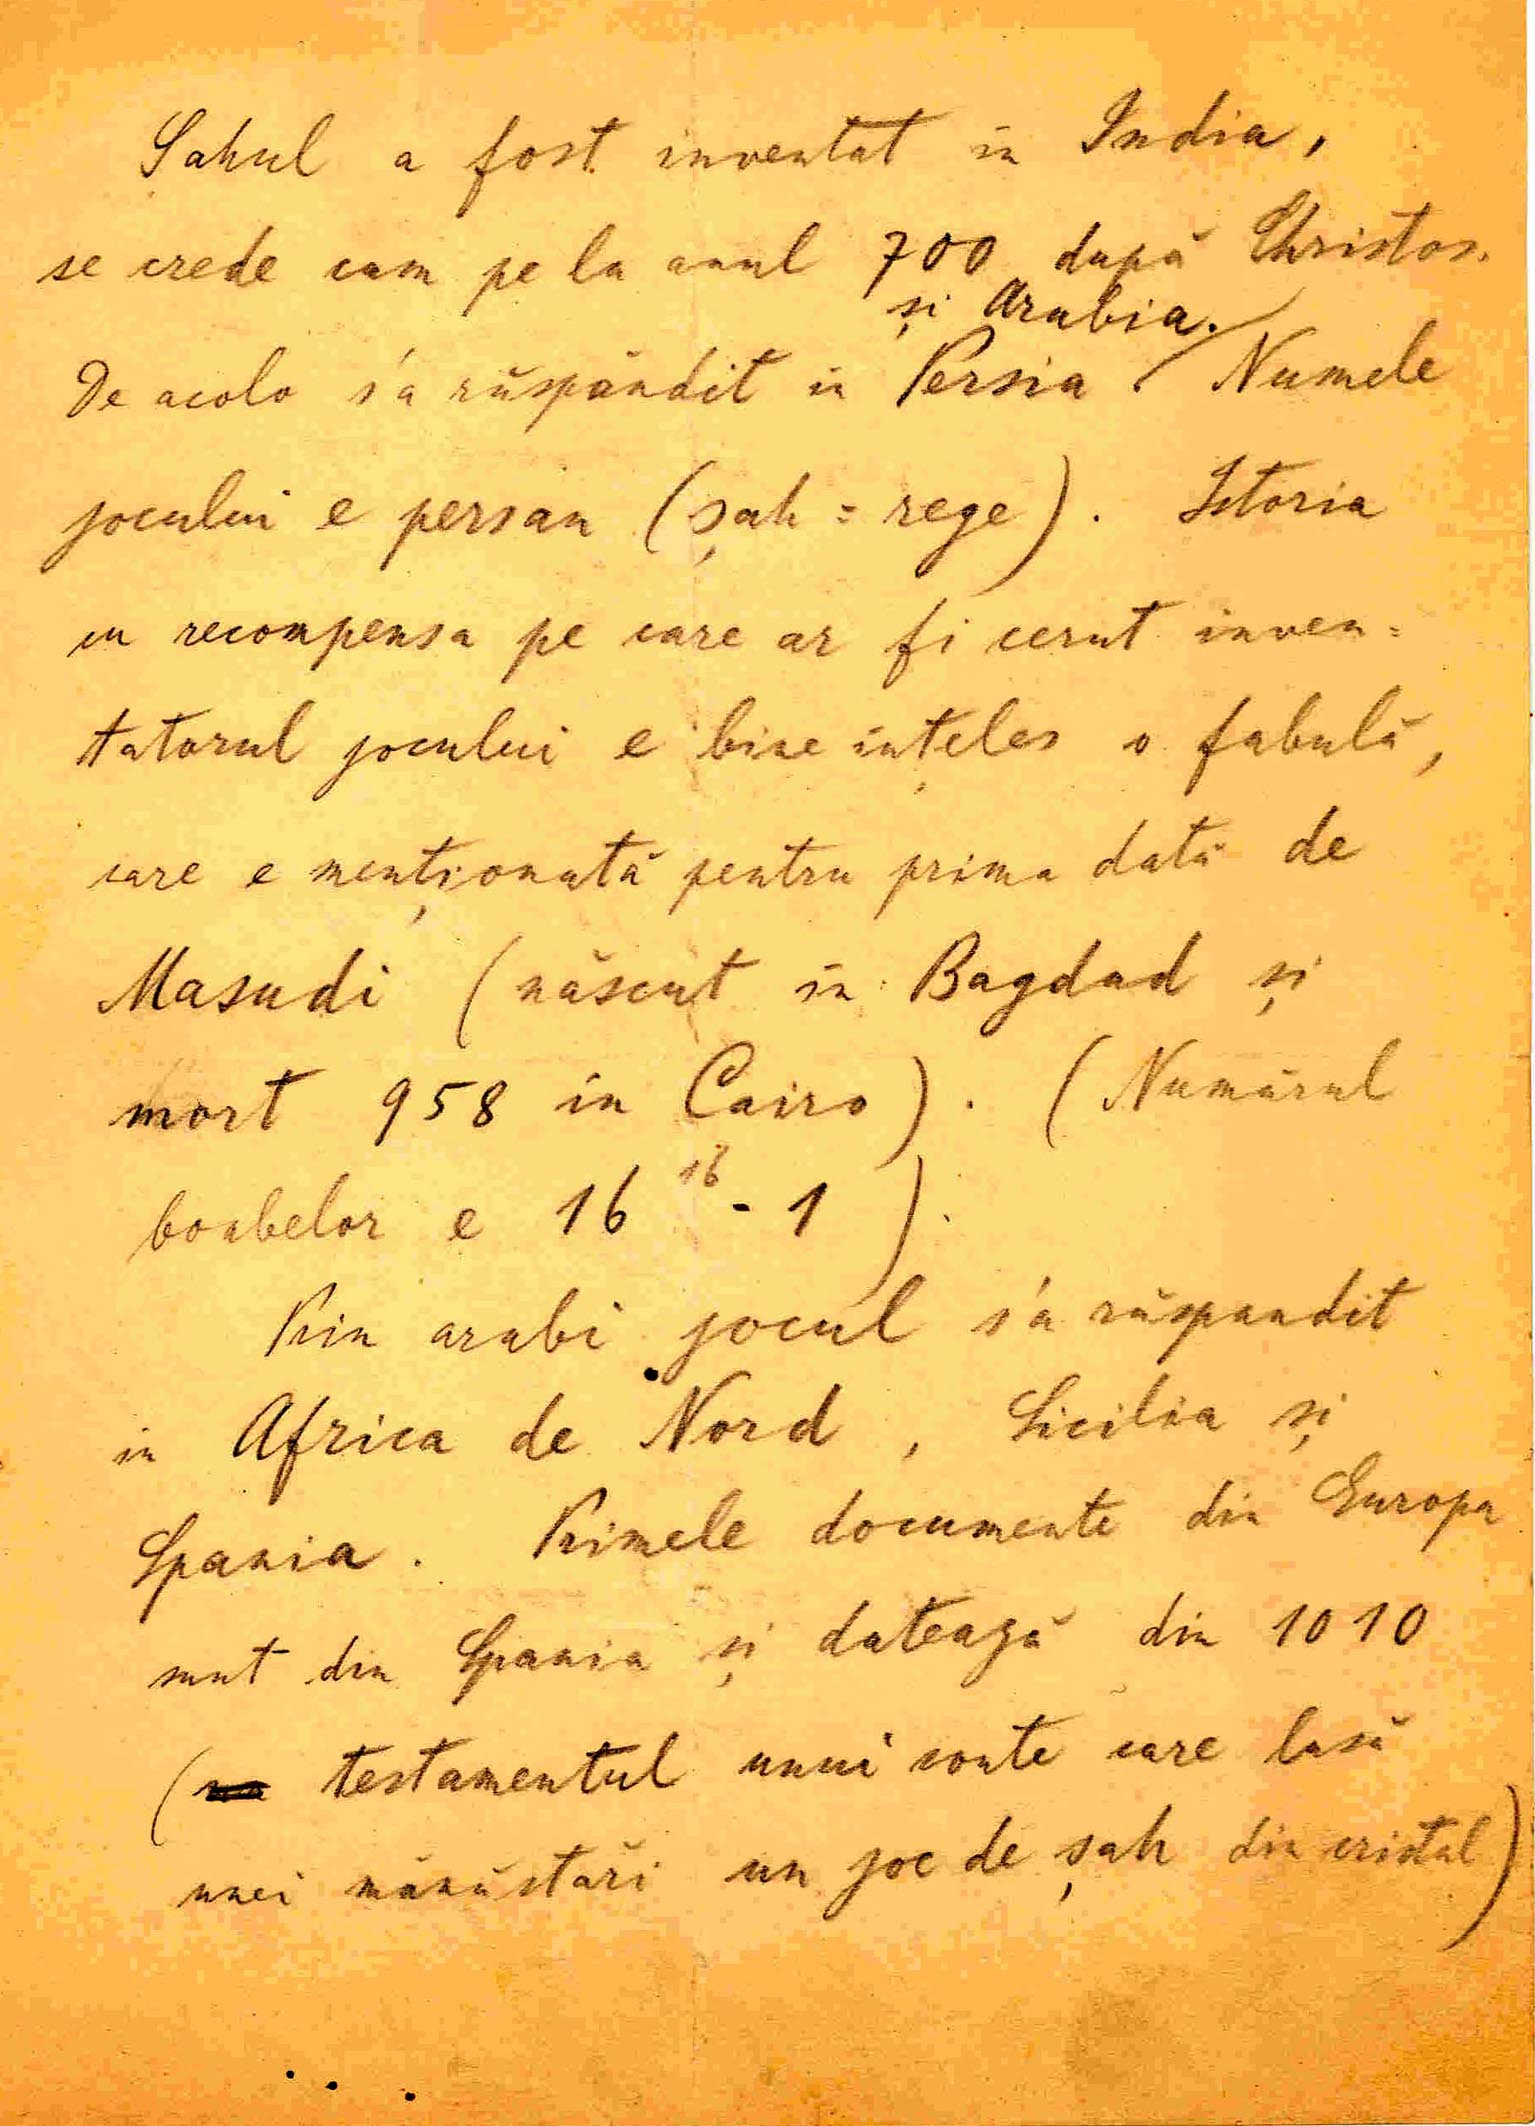 Șahul a fost inventat în India,
se crede cam pe la anul 700 după Christos.
și Arabia.
De acolo s'a răspândit în Persia. Numele
jocului e persan (șah = rege). Istoria
cu recompensa pe care ar fi cerut inven=
tatorul jocului e bine înțeles o fabulă,
care e menționată pentru prima dată de
Masudi (născut în Bagdad și
mort 958 în Cairo). (Numărul
boabelor e 16^16 - 1).
Prin arabi jocul s'a răspandit
în Africa de Nord, Sicilia și
Spania. Primele documente din Europa
sunt din Spania și datează din 1010
( testamentul unui conte care lasă
unei mănăstări un joc de șah din cristal)